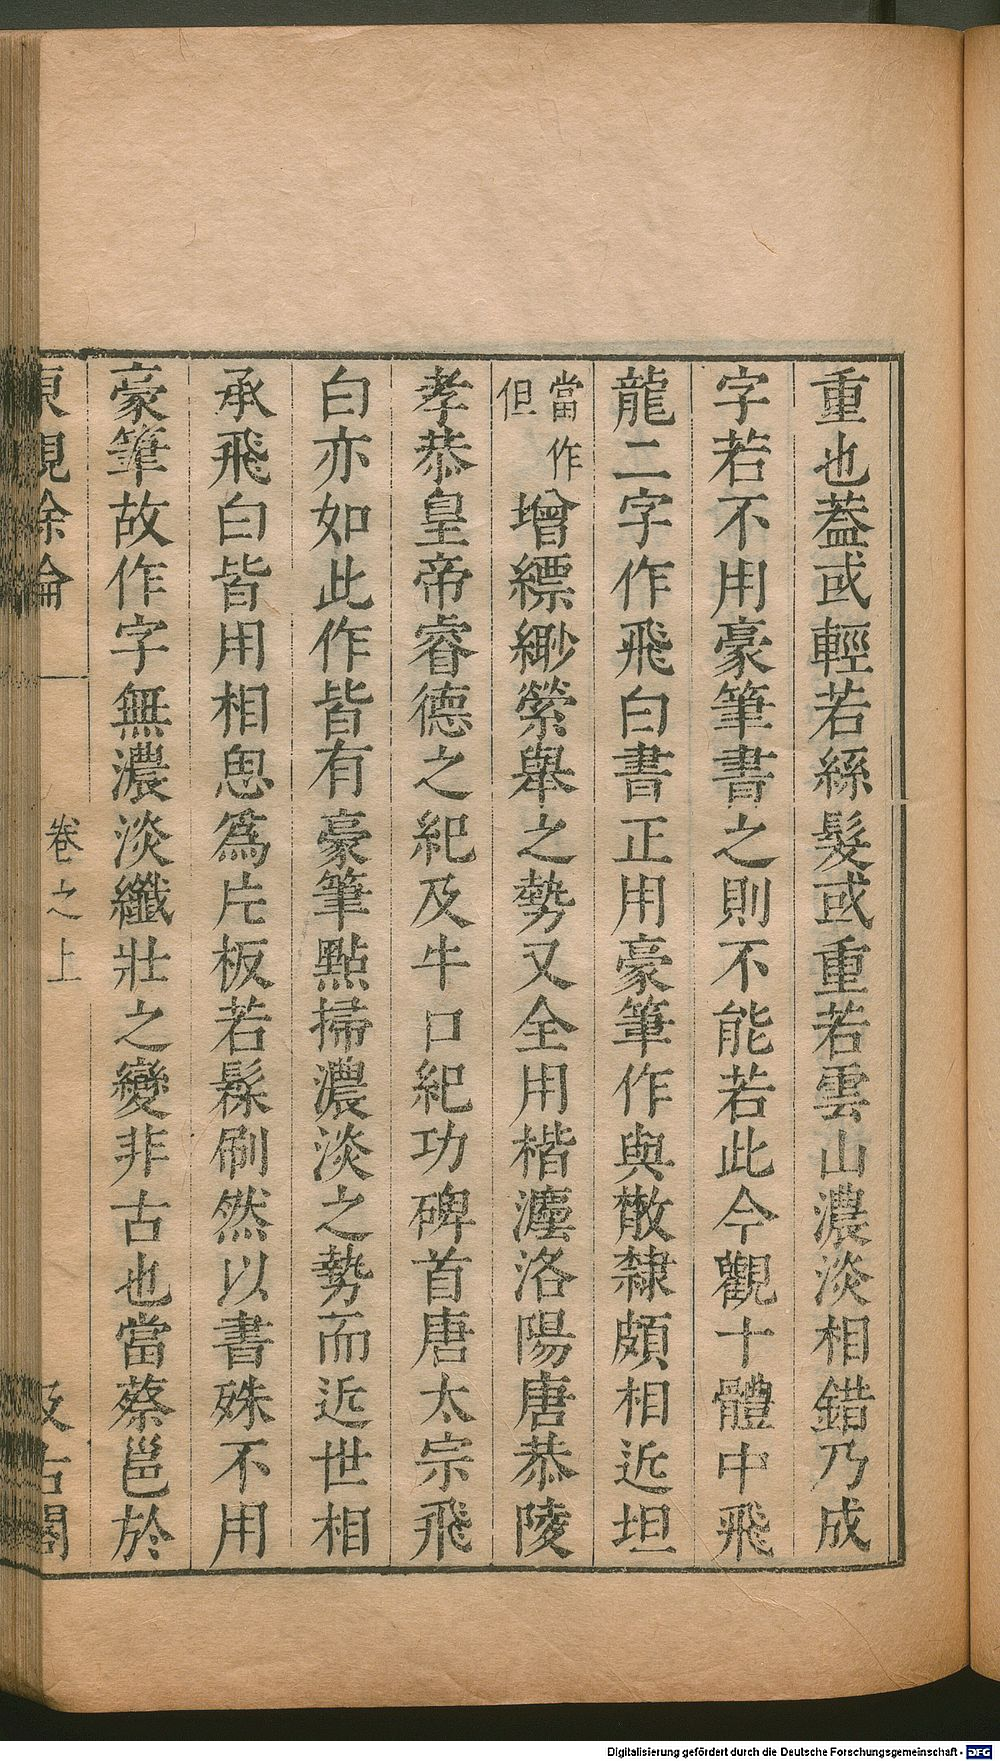 重也葢或輕若絲髮或重若雲山濃淡相錯乃成
字若不用豪筆書之則不能若此今觀十體中飛
龍二字作飛白書正用豪筆作與散隸頗相近坦
當作
但
增縹緲縈舉之勢又全用楷灋洛陽唐恭陵
孝恭皇帝睿德之紀及牛口紀功碑首唐太宗飛
白亦如此作皆有豪筆點掃濃淡之勢而近世相
承飛白皆用相思爲片板若鬃刷然以書殊不用
豪筆故作字無濃淡纖壯之變非古也當蔡邕於
東觀餘論
卷之上
汲古閣
Digitalisierung gefördert durch die Deutsche Forschungsgemeinschaft - DFG